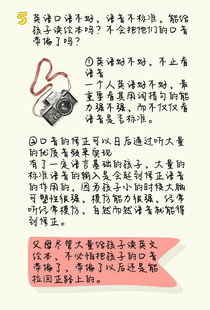 5 英语口语不好,语音不标准,能给
孩子读绘本吗?不会把他们的口音
带偏了吗?
①英语好不好,不止看
语音
一个人英语好不好,最
重要看其用词措句的能
力强不强,而不仅仅看
语音是否标准。
②口音的修正可以日后通过听大量
的优质音频来实现
有了一定语言基础的孩子,大量的
标准语音的输入是会起到修正语音
的作用的,因为孩子小的时候大脑
可塑性很强,模仿能力很强,经常
听经常模仿,自然而然语音就能得
到修正。
父母尽管大量给孩子读英文
绘本,不必怕把孩子的口音
带偏了,带偏了以后还是能
拉回正路上的。